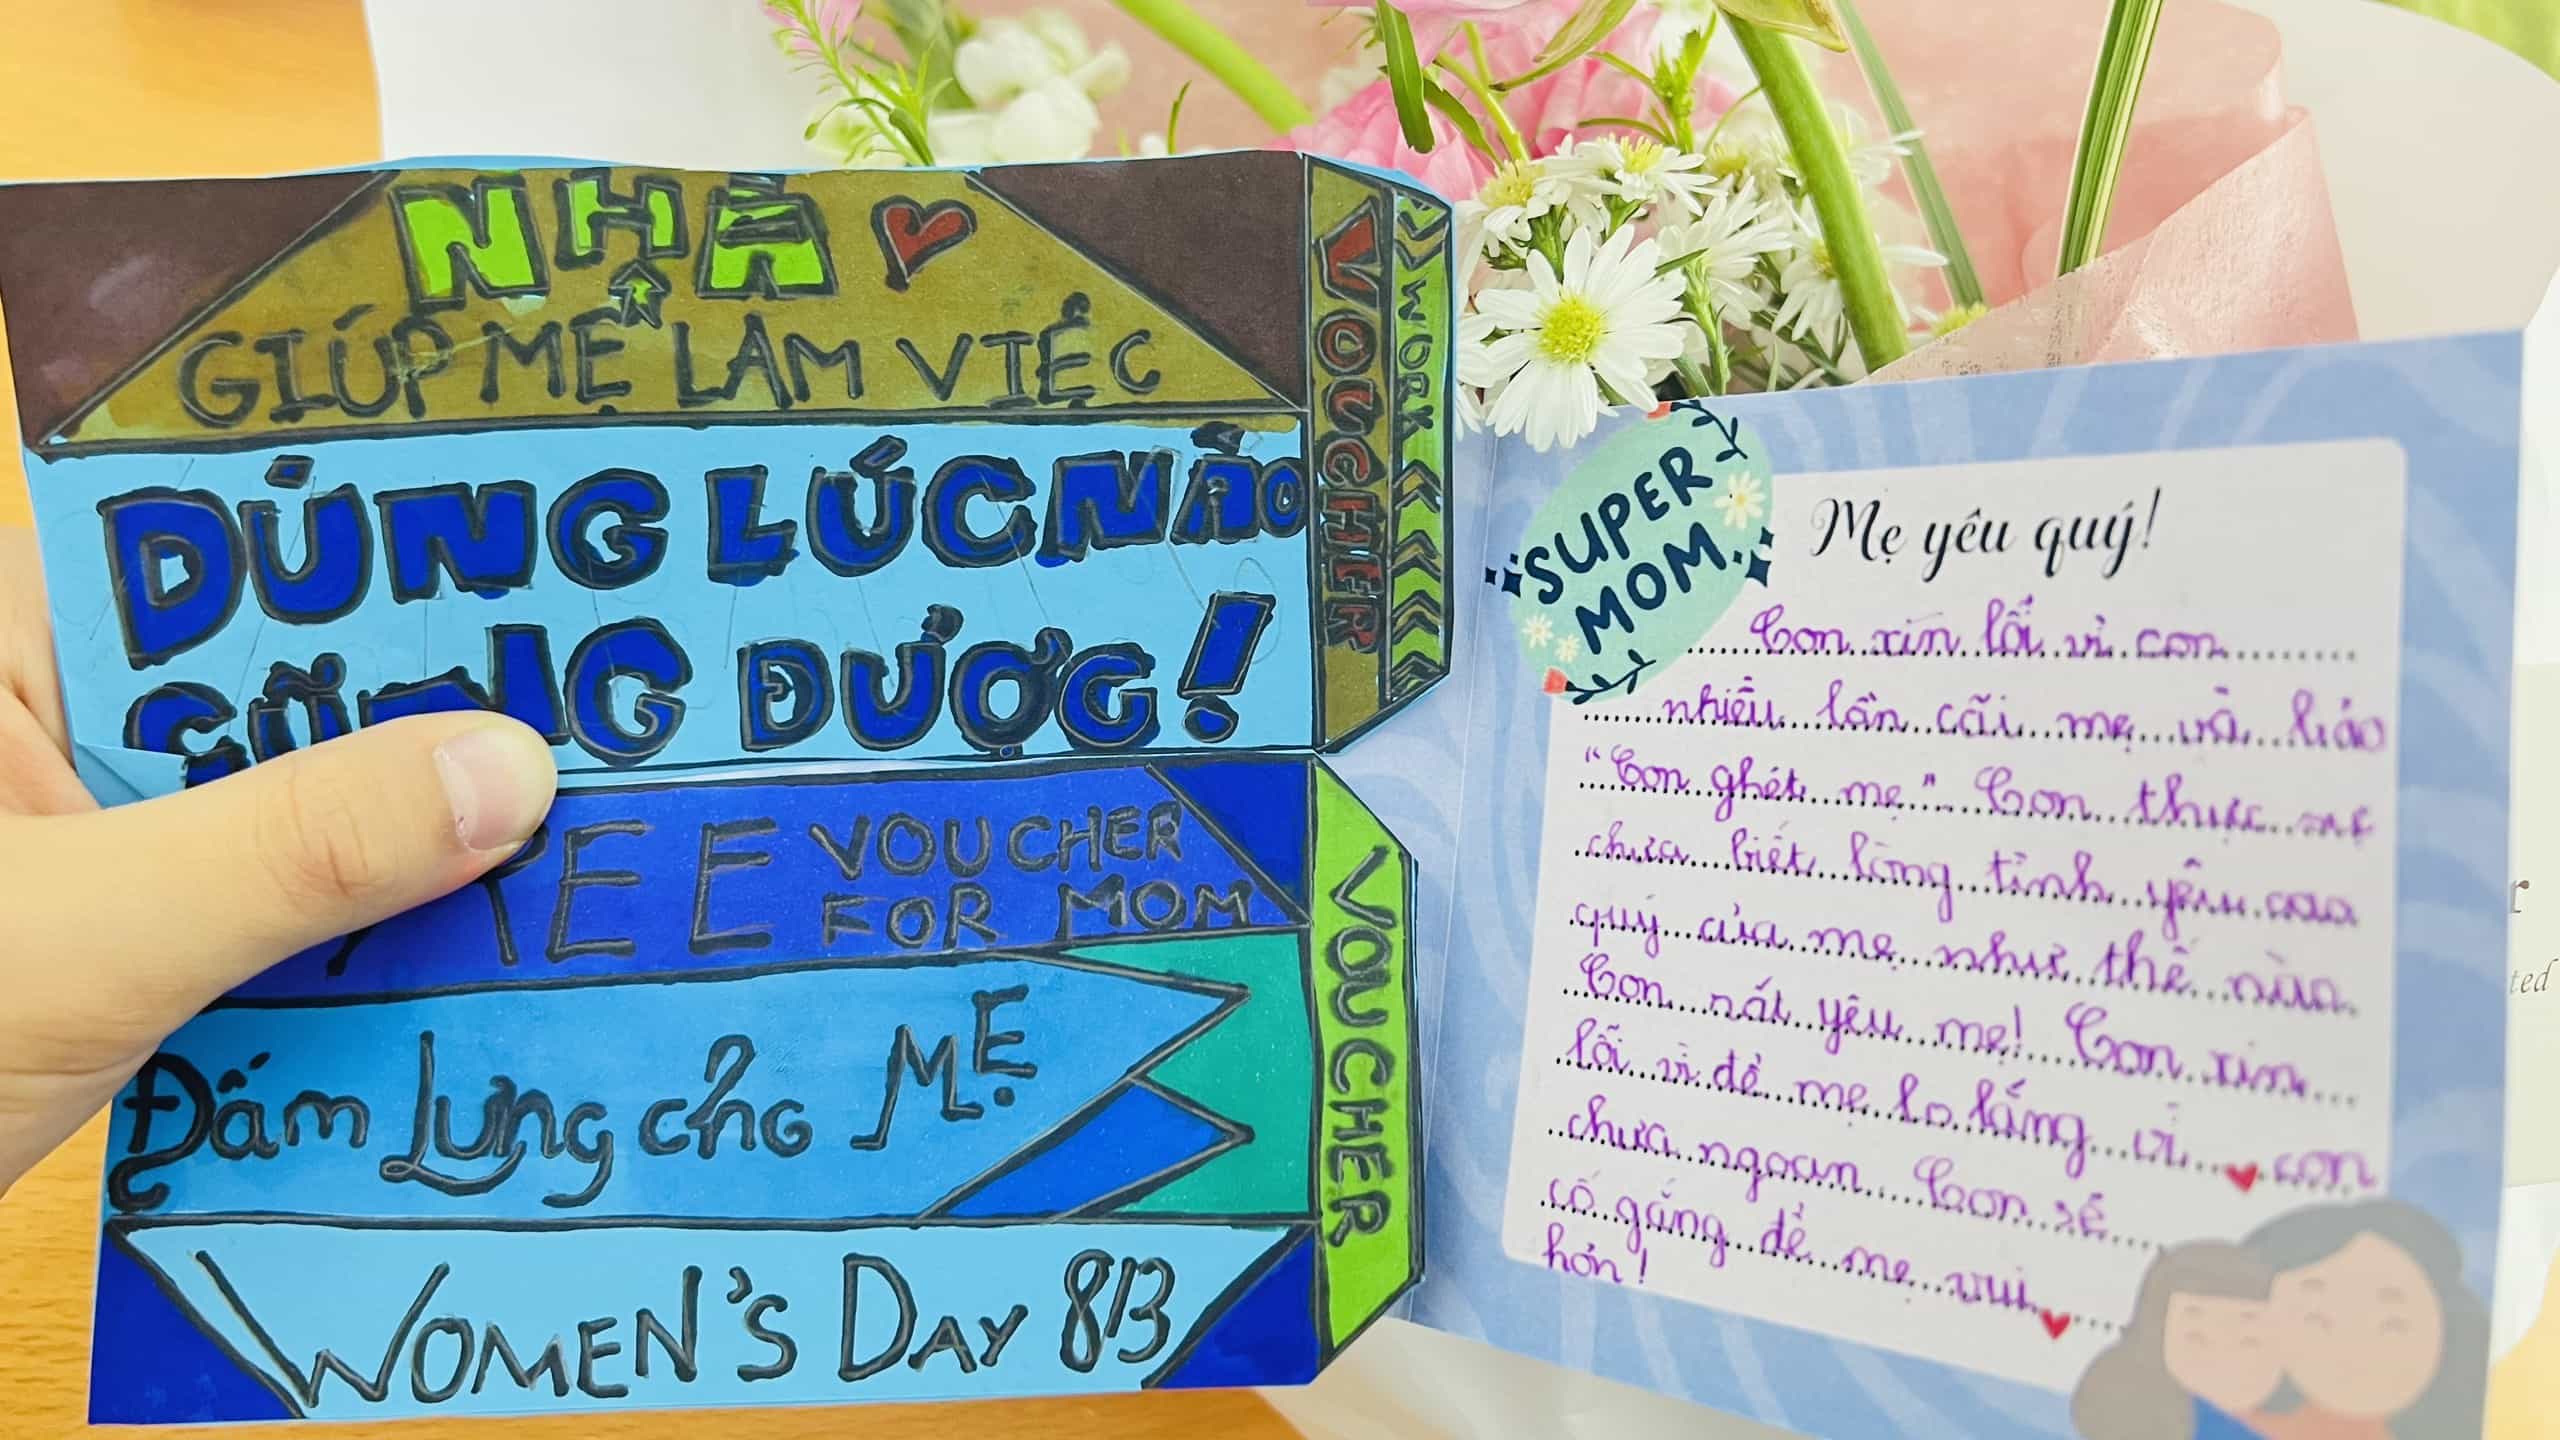 NHÀ
GIÚP MẸ LÀM VIỆC
DÙNG LÚC NÀO
CŨNG ĐƯỢC!
VOUCHER
WORK
FREE VOUCHER
FOR MOM
Đấm Lưng cho MẸ
WOMEN'S DAY 8/3
VOUCHER
SUPER
MOM
Mẹ yêu quý!
Con xin lỗi vì con
nhiều lần cãi mẹ và bảo
"Con ghét mẹ" Con thực sự
chưa biết lòng tình yêu cao
quý của mẹ như thế nào.
Con rất yêu mẹ! Con xin
lỗi vì để mẹ lo lắng vì con
chưa ngoan Con sẽ
cố gắng để mẹ vui
hơn!
ted